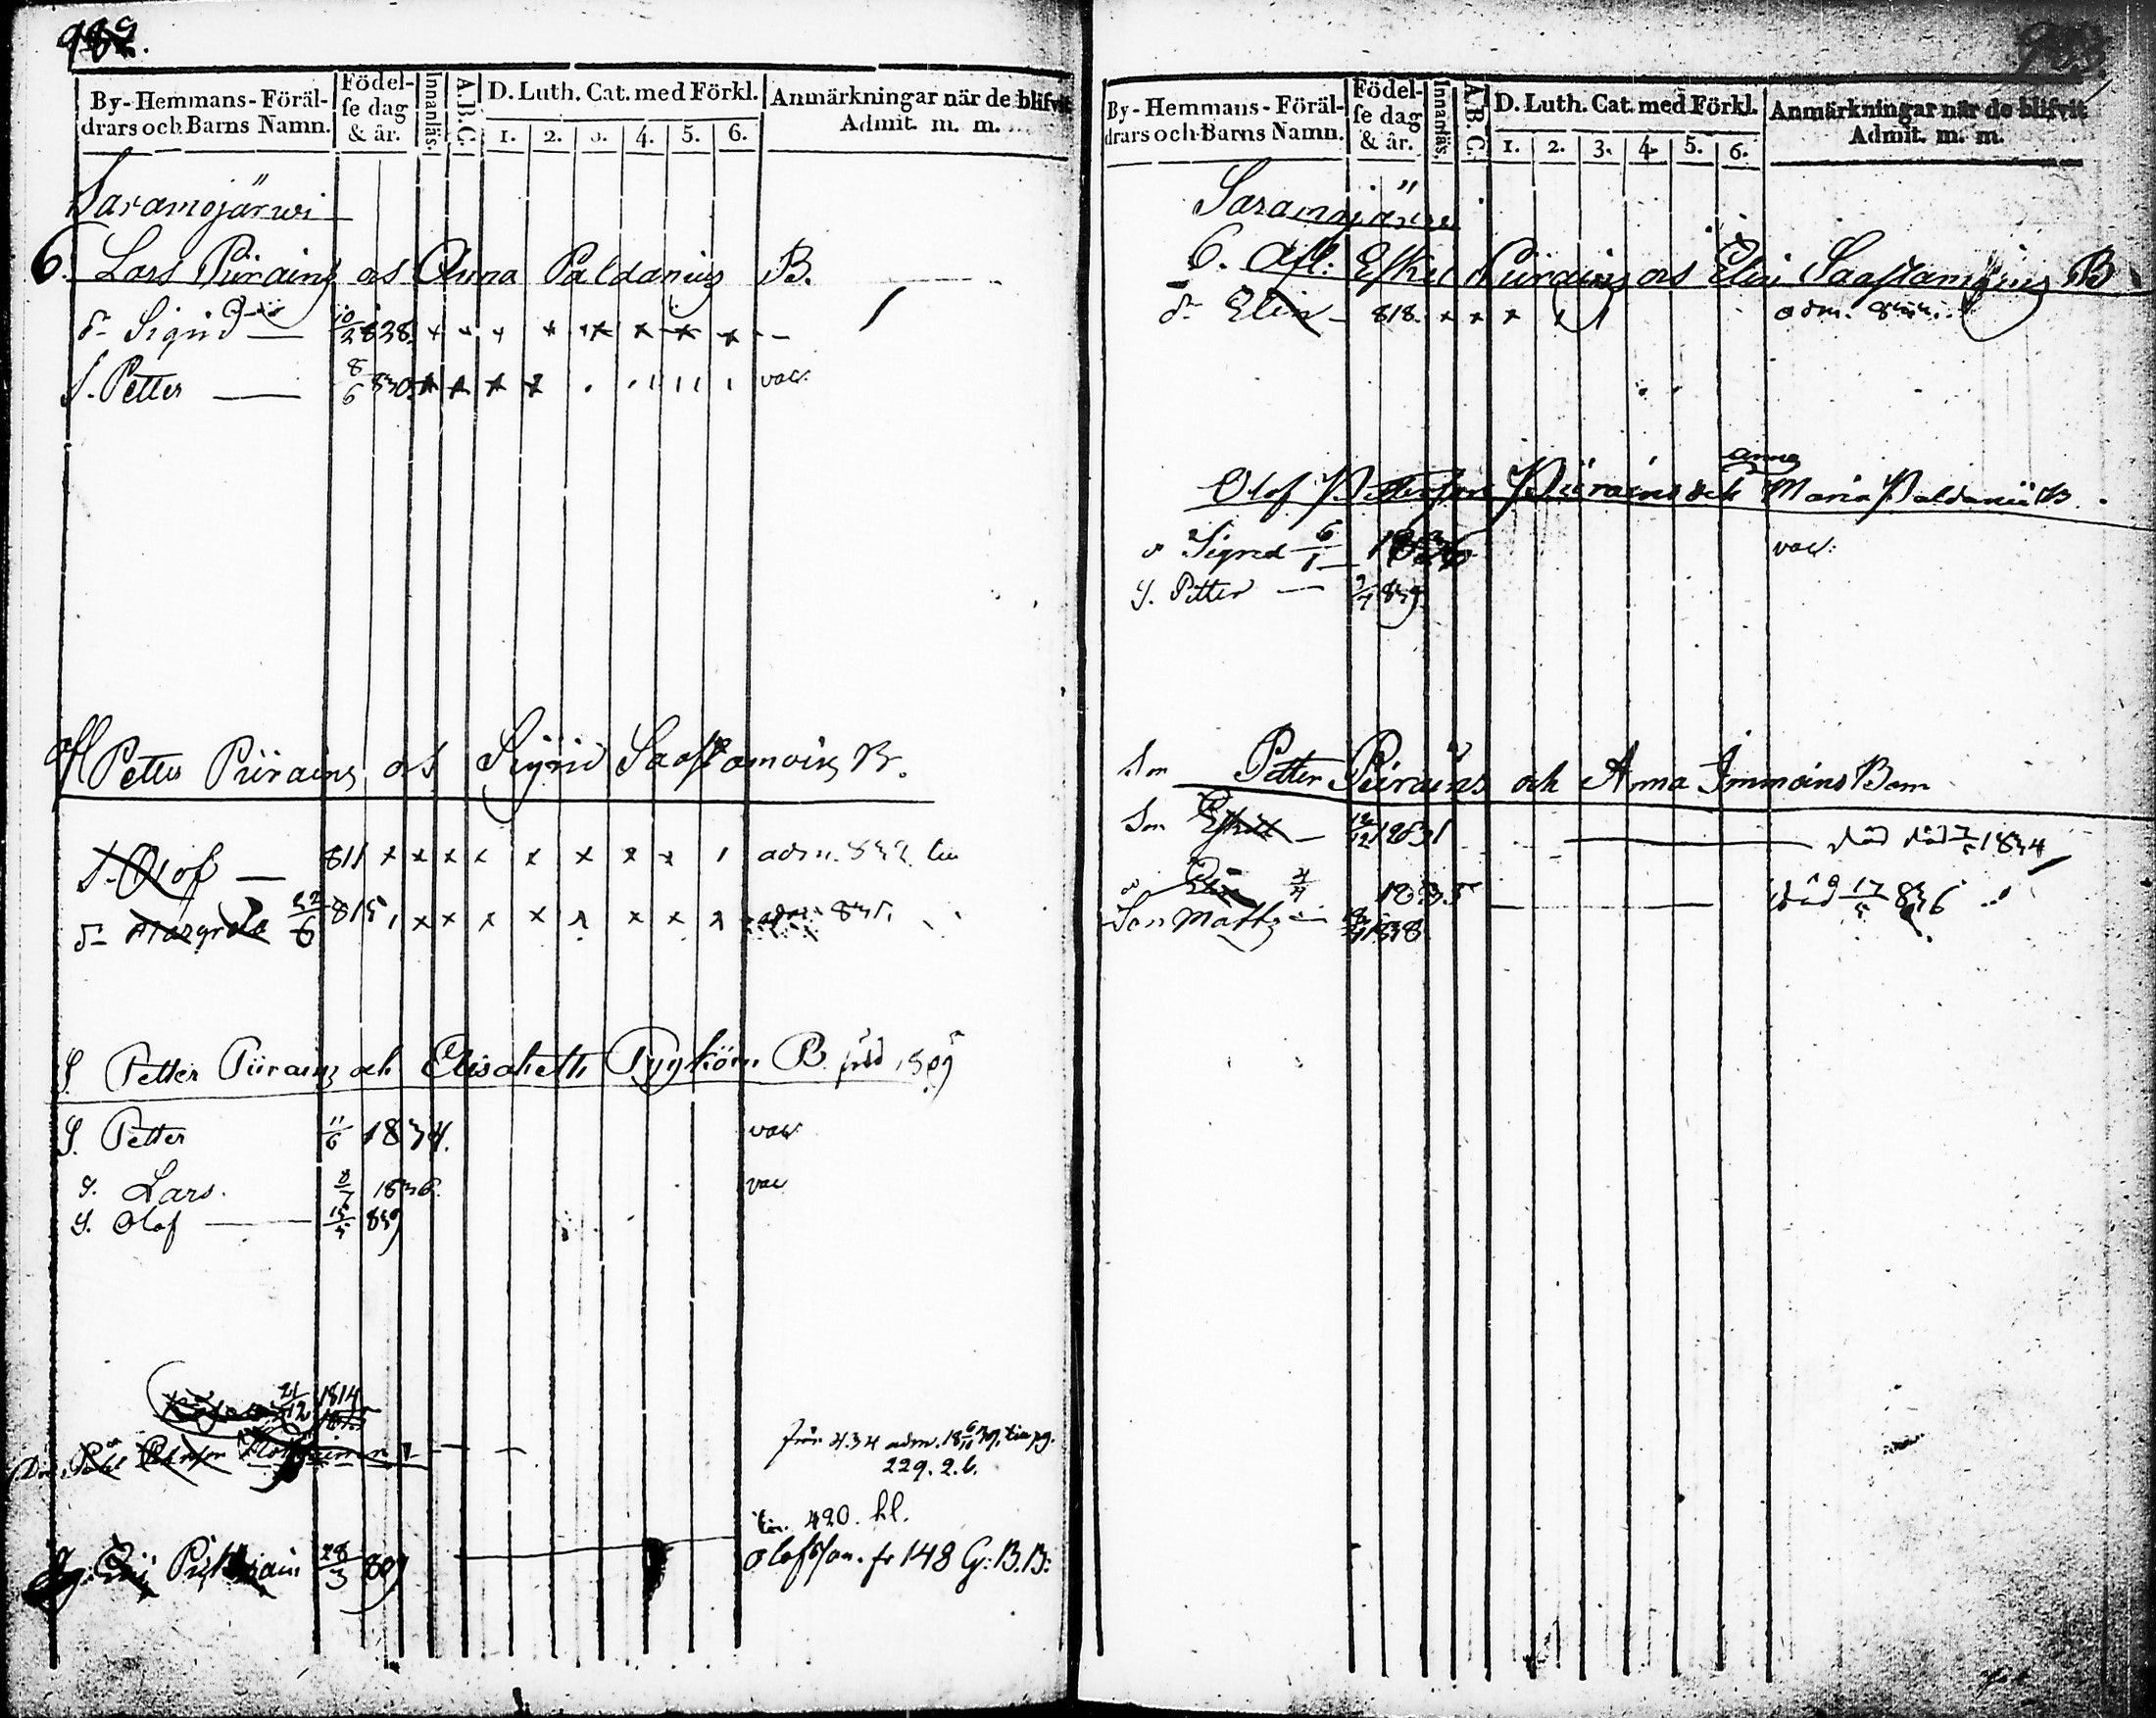 982.
By-Hemmans-Föräl-drars och Barns Namn. Födel-se dag & år. Innanläs. A.B.C. D. Luth. Cat. med Förkl. 1. 2. 3. 4. 5. 6. Anmärkningar när de blifvit Admit. m. m.
Saramojärwi
6. Lars Piirains os Anna Paldanius B.
d- Sigrid 10/2 828. x x x x x x x x
S. Petter 8/6 830. x x x x vac.
Afl Petter Piirains os Sigrid Saastamoins B.
S. Olof 811 x x x x x x x x adm. 832.
d- Margreta 22/6 815, x x x x x x x x adm. 835.
S. Petter Piirains och Elisabeth Pyykön. B. född 1809
S. Petter 11/6 1834. vac
S. Lars. 8/7 1836. vac
S. Olof 15/5 839
21/12 1814
från 434 adm. 18 6/11 39, tin pg.
229. 2. b.
Din. Påhl
tin. 420. hl.
28/3 809 Olofsson. fr 148 G: B. B:
By-Hemmans-Föräl-drars och Barns Namn. Födel-se dag & år. Innanläs. A.B.C. D. Luth. Cat. med Förkl. 1. 2. 3. 4. 5. 6. Anmärkningar när de blifvit Admit. m. m.
Saramojärwi
6. Afl: Eskel Piirains os Elin Saastamoins B
d- Elin 818. x x x x adm.
anna
Olof Pettersson Piirains och Maria Paldanii B.
d Sigred 6/1 1836 vac:
S. Petter 839.
Son Petter Piirains och Anna Immoins Barn
Son Eskel 12/12 1831 död 1834
d Elin 4/4 1835 död 17/5 836
Son Matts 1838